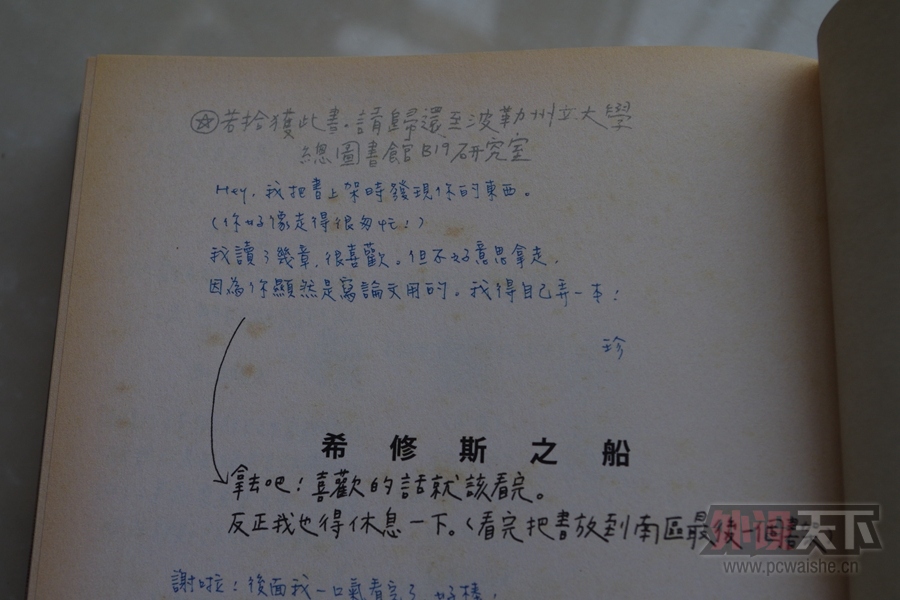 ☆若拾獲此書,請歸還至波勒州立大學
總圖書館B19研究室
Hey,我把書上架時發現你的東西。
(你好像走得很匆忙!)
我讀了幾章,很喜歡。但不好意思拿走,
因為你顯然是寫論文用的。我得自己弄一本!
珍
希修斯之船
拿去吧!喜歡的話就該看完。
反正我也得休息一下。(看完把書放到南區最後一個書
謝啦!後面我一口氣看完了 好棒!
外设天下
www.pcwaishe.cn